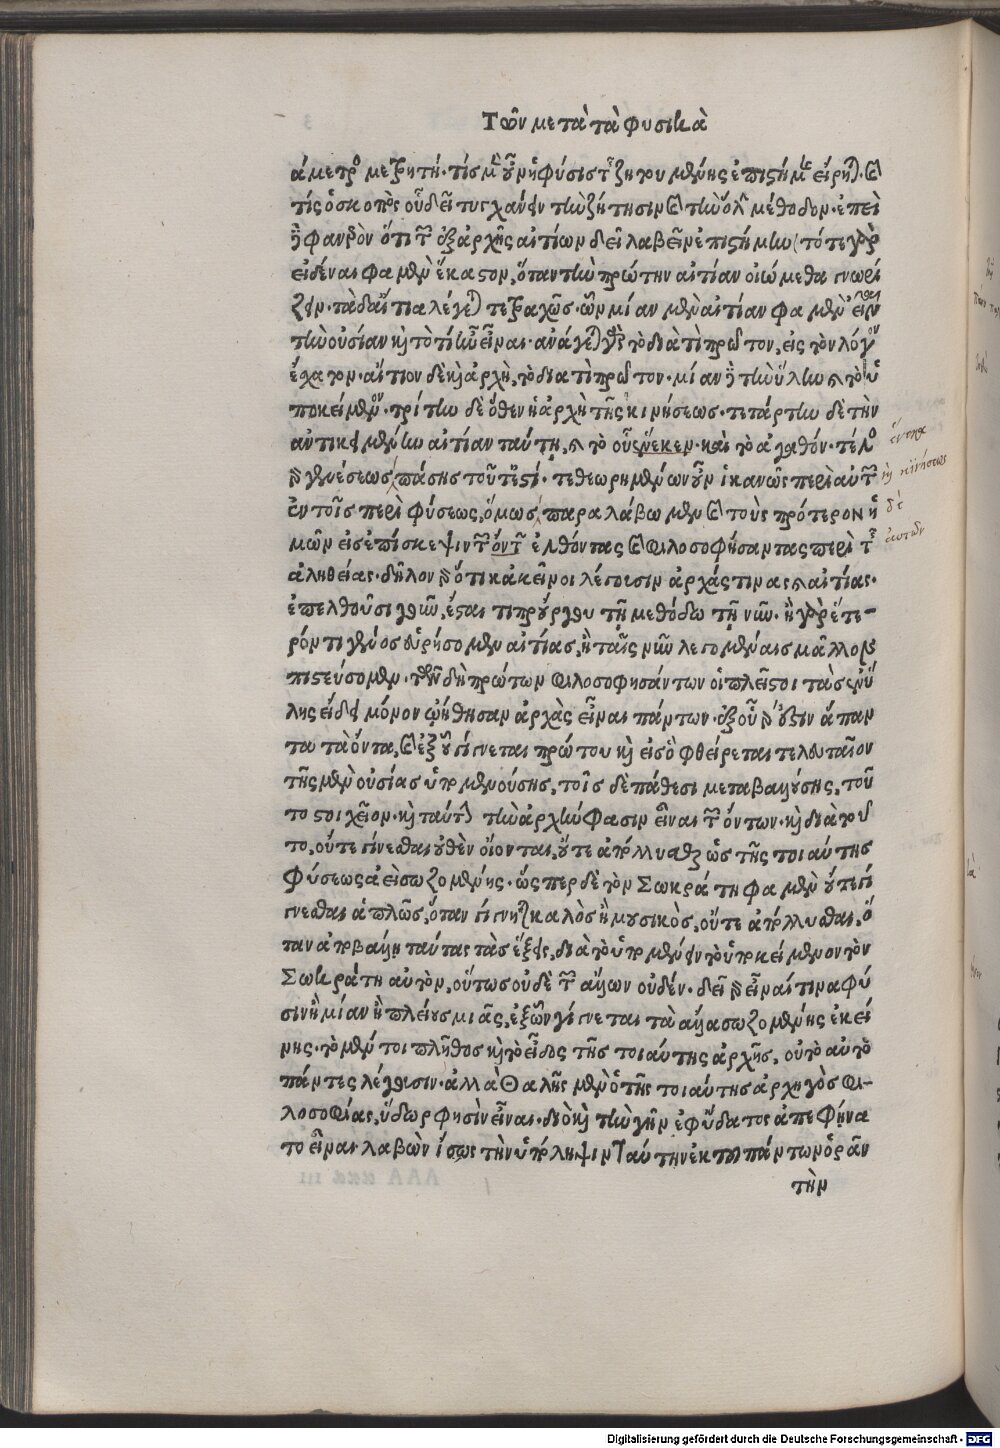 Τῶν μετὰ τὰ φυσικὰ
ἄμετρος μετρητή. τίς μὲν οὖν ἡ φύσις τῆς ζητουμένης ἐπιστήμης εἴρηται. καὶ
τίς ὁ σκοπὸς οὗ δεῖ τυγχάνειν τὴν ζήτησιν καὶ τὴν ὅλην μέθοδον. ἐπεὶ
δὲ φανερὸν ὅτι τῶν ἐξ ἀρχῆς αἰτίων δεῖ λαβεῖν ἐπιστήμην (τότε γὰρ
εἰδέναι φαμὲν ἕκαστον, ὅταν τὴν πρώτην αἰτίαν οἰώμεθα γνωρί
ζειν. τὰ δ' αἴτια λέγεται τετραχῶς. ὧν μίαν μὲν αἰτίαν φαμὲν εἶναι
τὴν οὐσίαν καὶ τὸ τί ἦν εἶναι. ἀνάγεται γὰρ τὸ διὰ τὶ πρῶτον, εἰς τὸν λόγον
ἔσχατον. αἴτιον δὲ καὶ ἀρχὴ, τὸ διὰ τὶ πρῶτον. μίαν δὲ τὴν ὕλην καὶ τὸ ὑ
ποκείμενον. τρίτην δὲ ὅθεν ἡ ἀρχὴ τῆς κινήσεως. τετάρτην δὲ τὴν
ἀντικειμένην αἰτίαν ταύτῃ, καὶ τὸ οὗ ἕνεκεν. καὶ τὸ ἀγαθόν. τέλος
γὰρ γενέσεως πάσης τοῦτ' ἐστί. τεθεωρημένων οὖν ἱκανῶς περὶ αὐτῶν
ἐν τοῖς περὶ φύσεως, ὅμως παραλάβωμεν καὶ τοὺς πρότερον ἡ
μῶν εἰς ἐπίσκεψιν τῶν ὄντων ἐλθόντας καὶ φιλοσοφήσαντας περὶ τῆς
ἀληθείας. δῆλον γὰρ ὅτι κἀκεῖνοι λέγουσιν ἀρχάς τινας καὶ αἰτίας.
ἐπελθοῦσι γοῦν, ἔσται τι προὔργου τῇ μεθόδῳ τῇ νῦν. ἢ γὰρ ἕτε-
ρόν τι γένος εὑρήσομεν αἰτίας, ἢ ταῖς νῦν λεγομέναις μᾶλλον
πιστεύσομεν. τῶν δὴ πρώτων φιλοσοφησάντων οἱ πλεῖστοι τὰς ἐν ὕ
λης εἴδει μόνον ᾠήθησαν ἀρχὰς εἶναι πάντων. ἐξ οὗ γὰρ ἔστιν ἅπαν
τα τὰ ὄντα, καὶ ἐξ οὗ γίγνεται πρώτου καὶ εἰς ὃ φθείρεται τελευταῖον
τῆς μὲν οὐσίας ὑπομενούσης, τοῖς δὲ πάθεσι μεταβαλλούσης, τοῦ
το στοιχεῖον. καὶ ταύτην τὴν ἀρχήν φασιν εἶναι τῶν ὄντων. καὶ διὰ τοῦ
το, οὔτε γίνεσθαι οὐθὲν οἴονται, οὔτε ἀπόλλυσθαι, ὡς τῆς τοιαύτης
φύσεως ἀεὶ σωζομένης. ὥσπερ δὲ τὸν Σωκράτη φαμὲν οὔτε γί
γνεσθαι ἁπλῶς, ὅταν γίγνηται καλὸς ἢ μουσικὸς, οὔτε ἀπόλλυσθαι, ὅ
ταν ἀποβάλλῃ ταύτας τὰς ἕξεις, διὰ τὸ ὑπομένειν τὸ ὑποκείμενον τὸν
Σωκράτη αὐτὸν, οὕτως οὐδὲ τῶν ἄλλων οὐδέν. δεῖ γὰρ εἶναί τινα φύ
σιν ἢ μίαν ἢ πλείους μιᾶς, ἐξ ὧν γίγνεται τὰ ἄλλα σωζομένης ἐκεί
νης. τὸ μέντοι πλῆθος καὶ τὸ εἶδος τῆς τοιαύτης ἀρχῆς, οὐ τὸ αὐτὸ
πάντες λέγουσιν. ἀλλὰ Θαλῆς μὲν ὁ τῆς τοιαύτης ἀρχηγὸς φι-
λοσοφίας, ὕδωρ φησὶν εἶναι. διὸ καὶ τὴν γῆν ἐφ' ὕδατος ἀπεφήνα
το εἶναι. λαβὼν ἴσως τὴν ὑπόληψιν ταύτην ἐκ τοῦ πάντων ὁρᾶν
τὴν
ἕνεκα
καὶ κινήσεως
δὲ
αὐτῶν
Digitalisierung gefördert durch die Deutsche Forschungsgemeinschaft - DFG